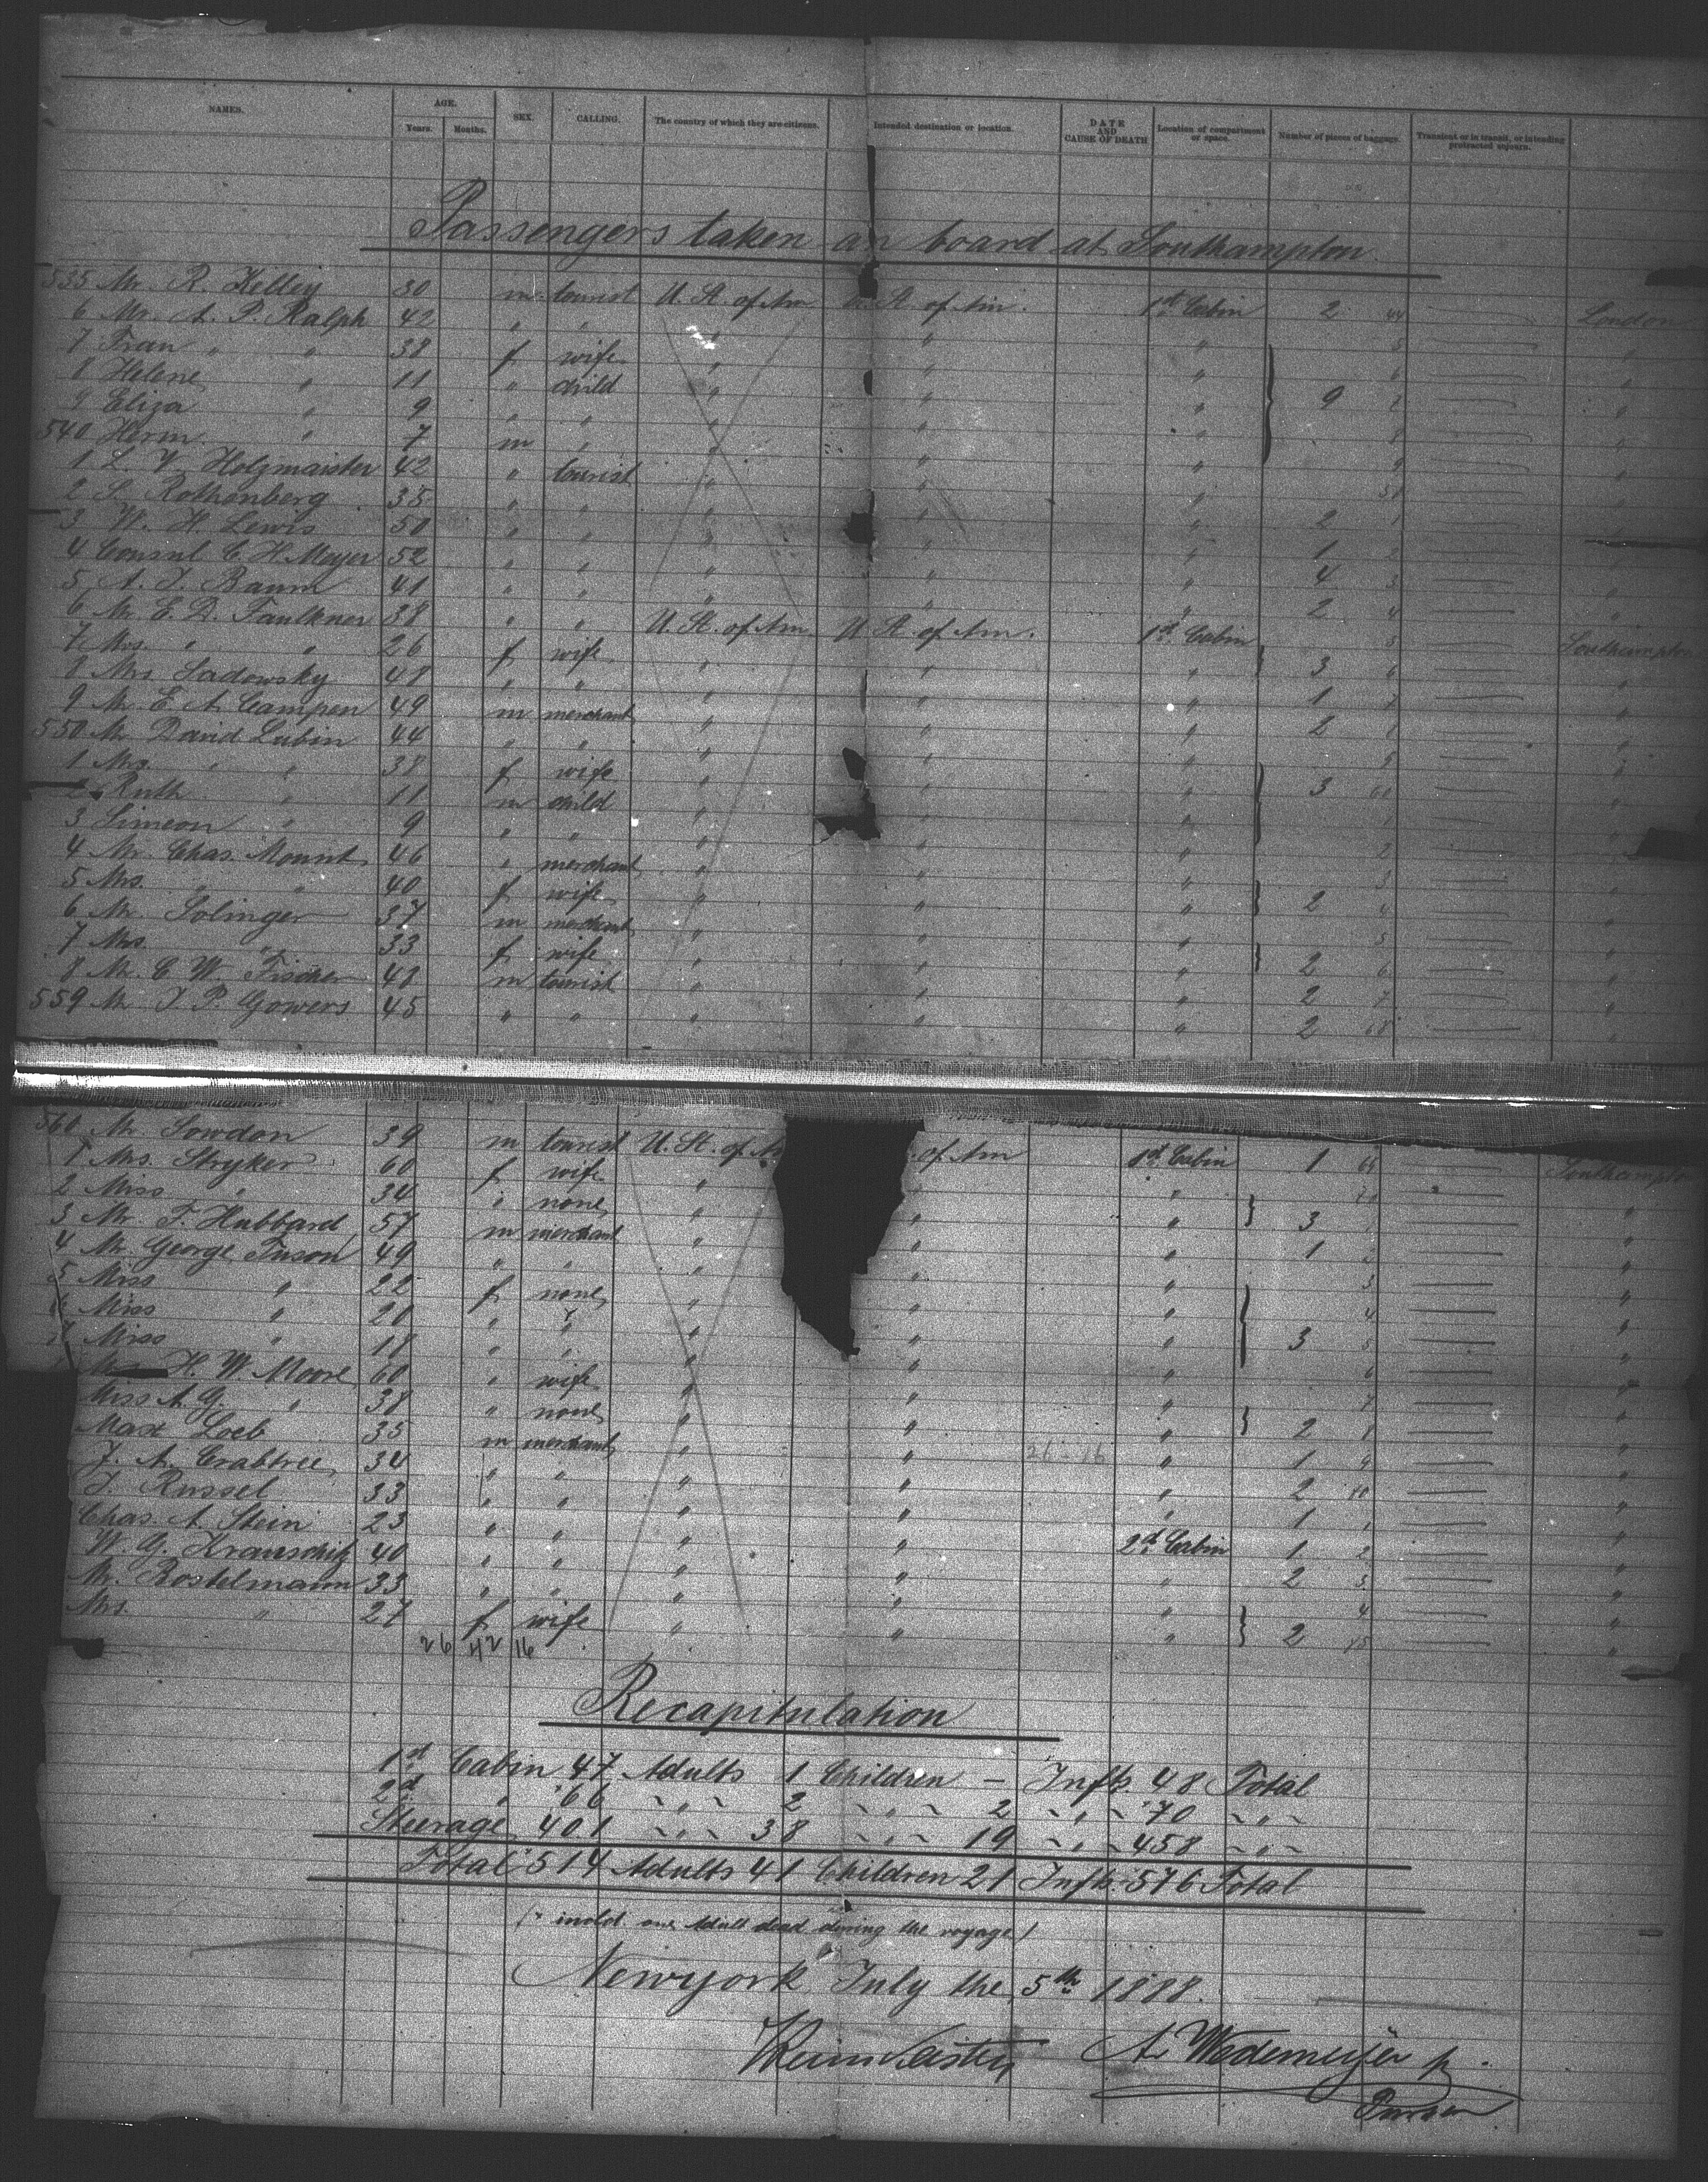 NAMES. AGE. Years. Months. SEX. CALLING. The country of which they are citizens. Intended destination or location. DATE AND CAUSE OF DEATH Location of compartment or space. Number of pieces of baggage. Transient or in transit, or intending protracted sojourn.
Passengers taken an board at Southampton.
535 Mr. R. Kelley 30 m tourist U. St. of Am U. St. of Am. 1st Cabin 2 44 London
6 Mr. A. P. Ralph 42 " " " " " 5 "
7 Frau " " 38 f wife " " " 6 "
8 Helene " 11 " child " " " 9 "
9 Eliza " 9 " " " " " 8 "
540 Herm " 7 m " " " " 9
1 L. V. Holzmaister 42 " tourist " " " 50
2 S. Rothenberg 35 " " " " " 2 1
3 W. H. Lewis 50 " " " " " 1 2
4 Consul C. H. Meyer 52 " " " " " 4 3
5 A. J. Baum 41 " " " " " 2 4 "
6 Mr. E. D. Faulkner 38 " " U. St. of Am. U. St. of Am. 1st Cabin 5 Southampton
7 Mrs. " " 26 f wife " " " 3 6 "
8 Mrs Sadowsky 48 " " " " " 1 7 "
9 Mr. E. A. Campen 49 m merchant " " " 2 8 "
550 Mr. David Lubin 44 " " " " " 9 "
1 Mrs. " " 38 f wife " " " 3 60 "
2 Ruth " 11 m child " " " 1 "
3 Simeon " 9 " " " " " 2 "
4 Mr. Chas. Mount 46 " merchant " " " 3 "
5 Mrs. " " 40 f wife " " " 2 4 "
6 Mr. Solinger 37 m merchant " " " 5 "
7 Mrs. " 33 f wife " " " 2 6 "
8 Mr. C. W. Fischer 48 m tourist " " " 2 7 "
559 Mr J. P. Gowers 45 " " " " " 2 68 "
560 Mr. Sowdon 39 m tourist U. St. of Am of Am 1st Cabin 1 69 Southampton
1 Mrs. Stryker 60 f wife " " " 70 "
2 Miss " 34 " none " " " 3 1 "
3 Mr. F. Hubbard 57 m merchant " " " 1 2 "
4 Mr. George Tuson 49 " " " " " 3 "
5 Miss " 22 f none " " " 4 "
6 Miss " 20 " " " " " 3 5 "
7 Miss " 18 " " " " " 6 "
Mrs H. W. Moore 60 " wife " " " 7 "
Miss A. G. " 38 " none " " " 2 8 "
Max Loeb 35 m merchant " " 26 - 16 " 1 9 "
J. A. Crabtree 34 " " " " " 2 10 "
J. Russel 33 " " " " " 1 1 "
Chas. A. Stein 23 " " " " 2d Cabin 1 2 "
W. G. Krauschitz 40 " " " " " 2 3 "
Mr. Rostelmann 33 " " " " " 4 "
Mrs. " 27 f wife " " " 2 15 "
26 42 16
Recapitulation
1st Cabin 47 Adults 1 Children - Infts. 48 Total
2d " 66 " 2 " 2 " 70 "
Steerage 401 " 38 " 19 " 458 "
Total 514 Adults 41 Children 21 Infts. 576 Total
(* incld one Adult dead during the voyage)
Newyork July the 5th 1888.
A. Wedemeyer
Purser